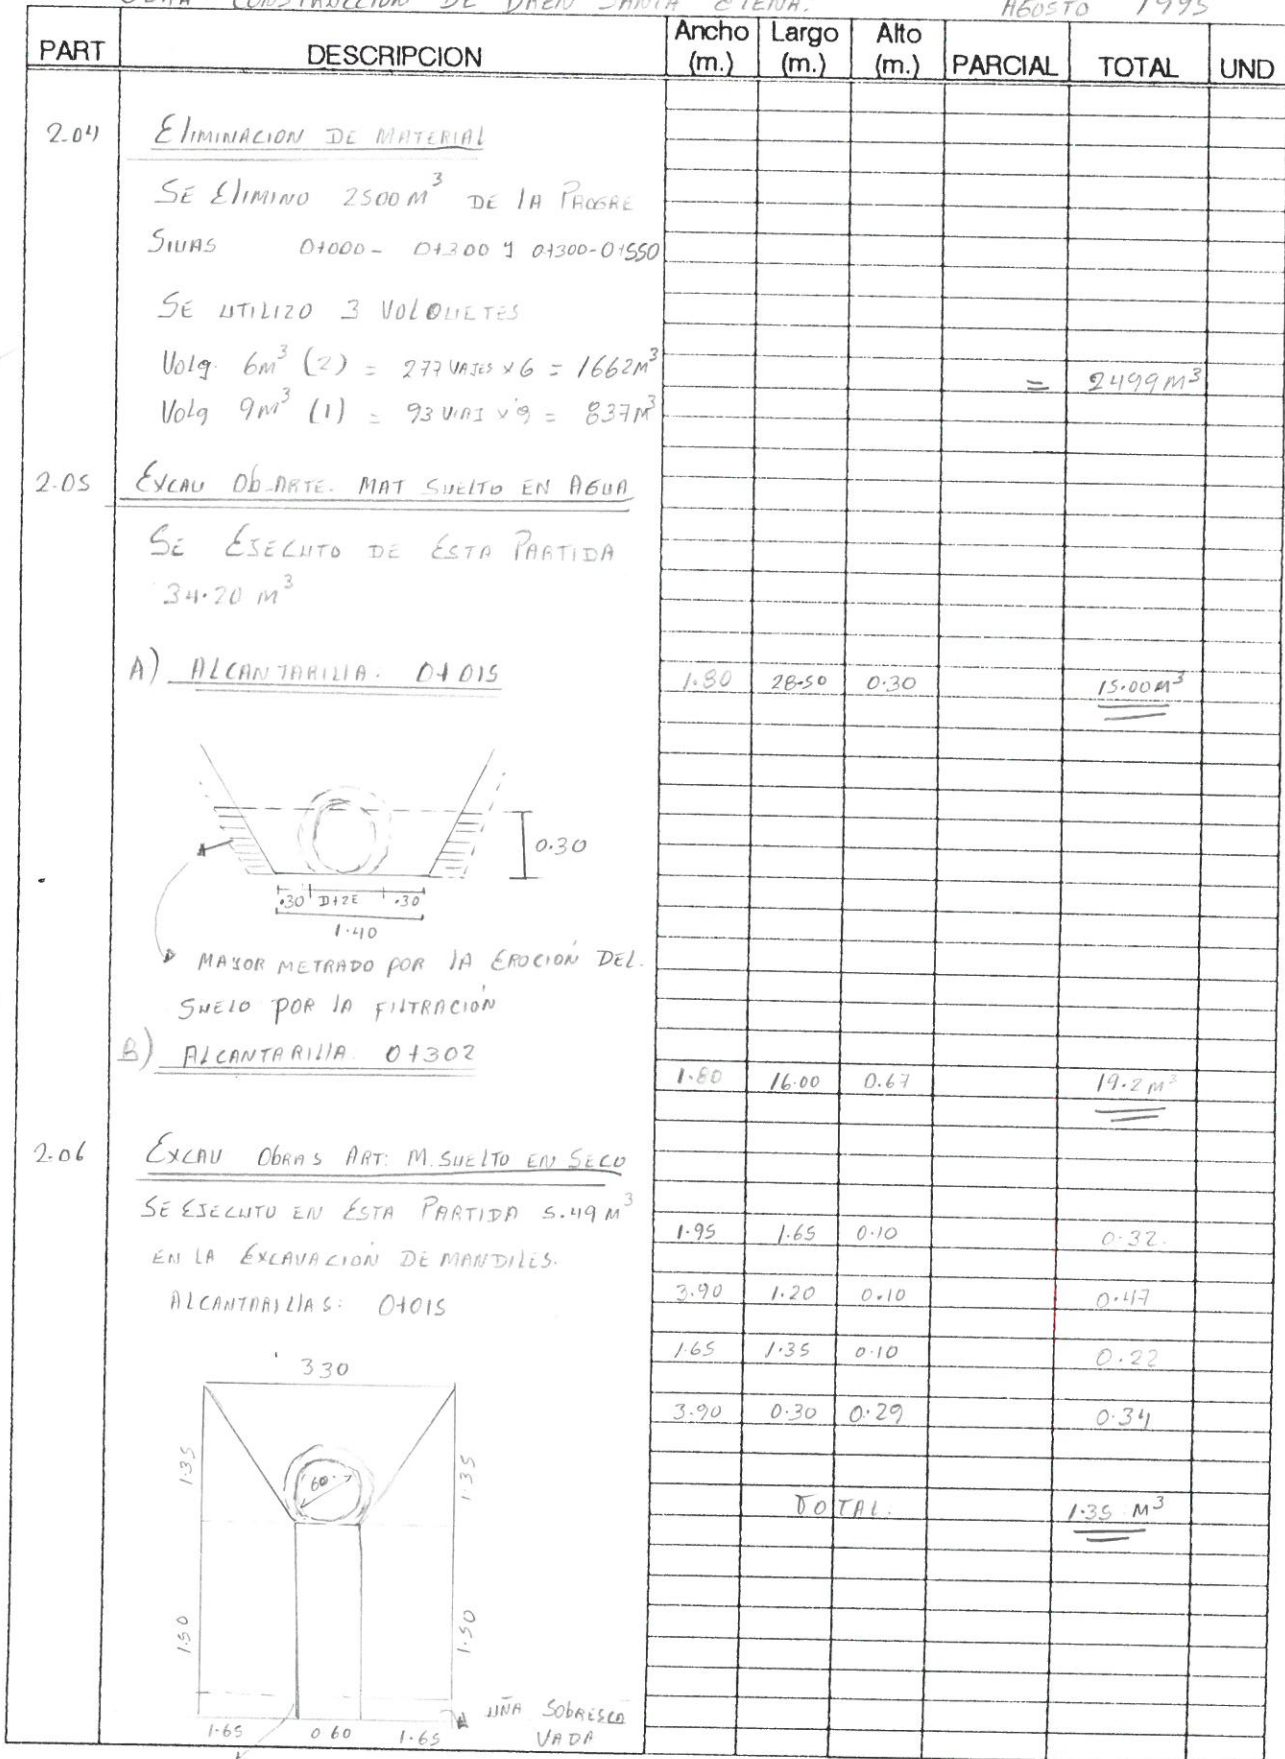 OBRA CONSTRUCCION DE DREN SANTA ELENA. AGOSTO 1995
PART DESCRIPCION Ancho (m.) Largo (m.) Alto (m.) PARCIAL TOTAL UND
2.04 ELIMINACION DE MATERIAL
SE ELIMINO 2500 M³ DE LA PROGRE
SIVAS 0+000 - 0+300 y 0+300-0+550
SE UTILIZO 3 VOLQUETES
Volq. 6m³ (2) = 277 VAJES x 6 = 1662M³
= 2499M³
Volq 9m³ (1) = 93 VIAJ x 9 = 837M³
2.05 EXCAV Ob-ARTE. MAT SUELTO EN AGUA
SE EJECUTO DE ESTA PARTIDA
34.20 m³
A) ALCANTARILLA. 0+015 1.80 28.50 0.30 15.00M³
0.30
.30 D+2E .30
1.40
MAYOR METRADO POR LA EROCIÓN DEL.
SUELO POR LA FILTRACIÓN
B) ALCANTARILLA. 0+302 1.80 16.00 0.67 19.2 M³
2.06 EXCAV ObRAS ART: M. SUELTO EN SECO
SE EJECUTO EN ESTA PARTIDA 5.49 M³
1.95 1.65 0.10 0.32.
EN LA EXCAVACIÓN DE MANDILES.
ALCANTARILLAS: 0+015 3.90 1.20 0.10 0.47
1.65 1.35 0.10 0.22
3.30
3.90 0.30 0.29 0.34
1.35 60 1.35
TOTAL. 1.35 M³
1.50 1.50
UÑA SOBRESCA
VADA
1.65 0.60 1.65